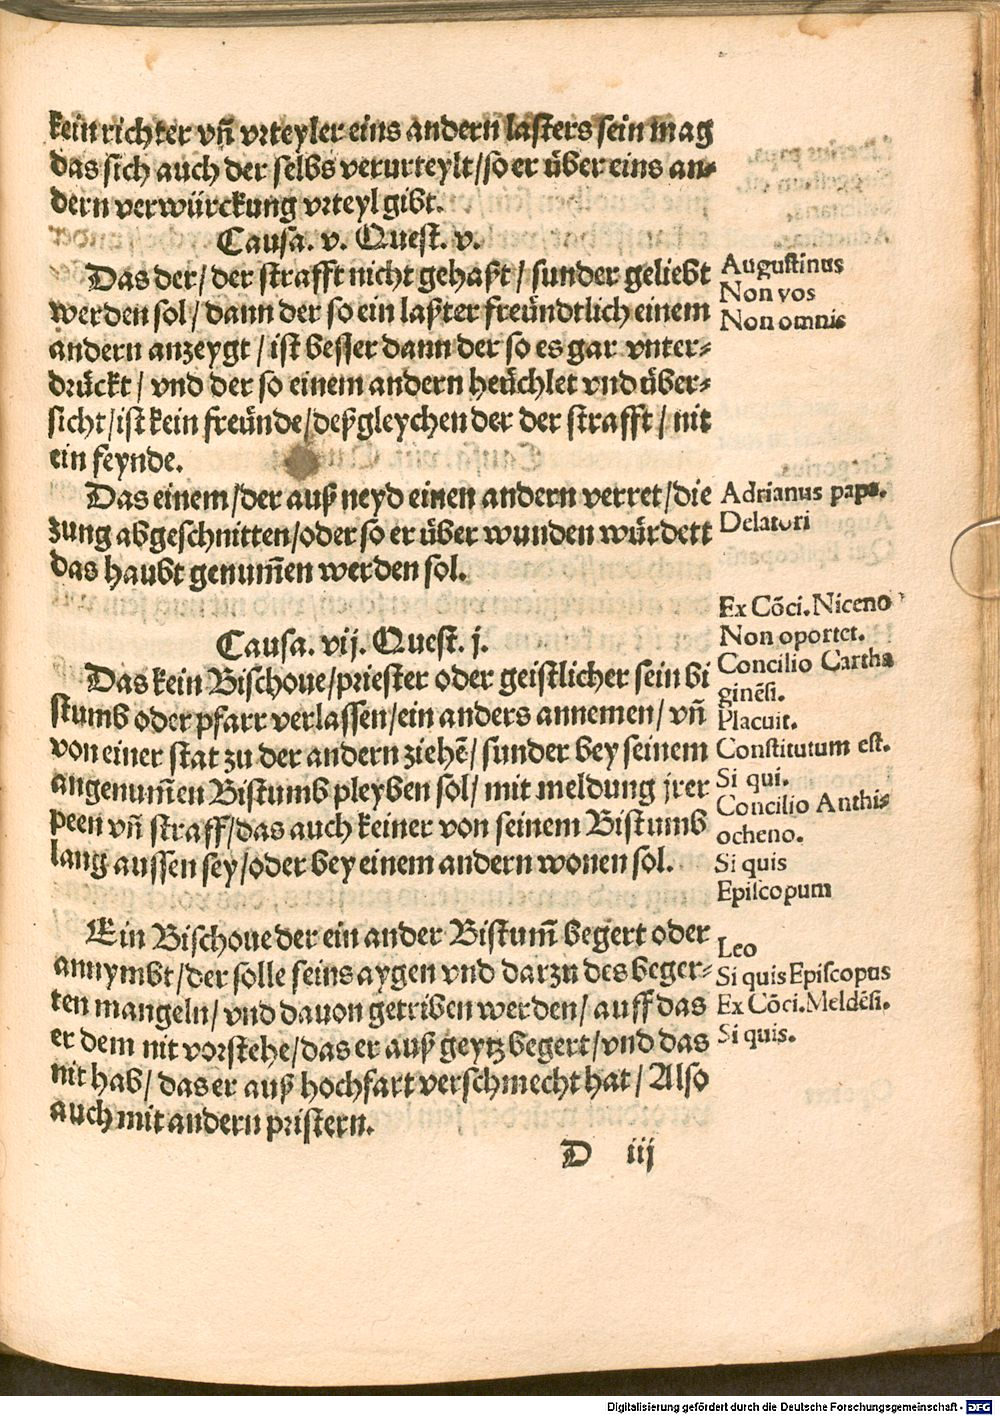 kein richter vnd̄ vrteyler eins andern lasters sein mag
das sich auch der selbs verurteylt/so er über eins an-
dern verwürckung vrteyl gibt.
Causa. v. Quest. v.
Das der/ der strafft nicht gehaßt/ sunder geliebt
werden sol/ dann der so ein laßter freündtlich einem
andern anzeygt/ ist besser dann der so es gar vnter-
drückt/ vnd der so einem andern heüchlet vnd über-
sicht/ist kein freünde/deßgleychen der der strafft/ nit
ein feynde.
Augustinus
Non vos
Non omnis
Das einem/der auß neyd einen andern verret/die
zung abgeschnitten/oder so er über wunden würdett
das haubt genum̄en werden sol.
Adrianus papa.
Delatori
Causa. vij. Quest. j.
Das kein Bischoue/priester oder geistlicher sein bi
stumb oder pfarr verlassen/ein anders annemen/ vn̄
von einer stat zu der andern ziehē/ sunder bey seinem
angenum̄en Bistumb pleyben sol/ mit meldung jrer
peen vn̄ straff/das auch keiner von seinem Bistumb
lang aussen sey/oder bey einem andern wonen sol.
Ex Cōci. Niceno
Non oportet.
Concilio Cartha
ginēsi.
Placuit.
Constitutum est.
Si qui.
Concilio Anthi-
ocheno.
Si quis
Episcopum
Ein Bischoue der ein ander Bistum̄ begert oder
annymbt/der solle seins aygen vnd darzu des beger-
ten mangeln/ vnd dauon getriben werden/ auff das
er dem nit vorstehe/das er auß geytz begert/vnd das
nit hab/ das er auß hochfart verschmecht hat/ Also
auch mit andern pristern.
Leo
Si quis Episcopus
Ex Cōci. Meldēsi.
Si quis.
D iij
Digitalisierung gefördert durch die Deutsche Forschungsgemeinschaft - DFG